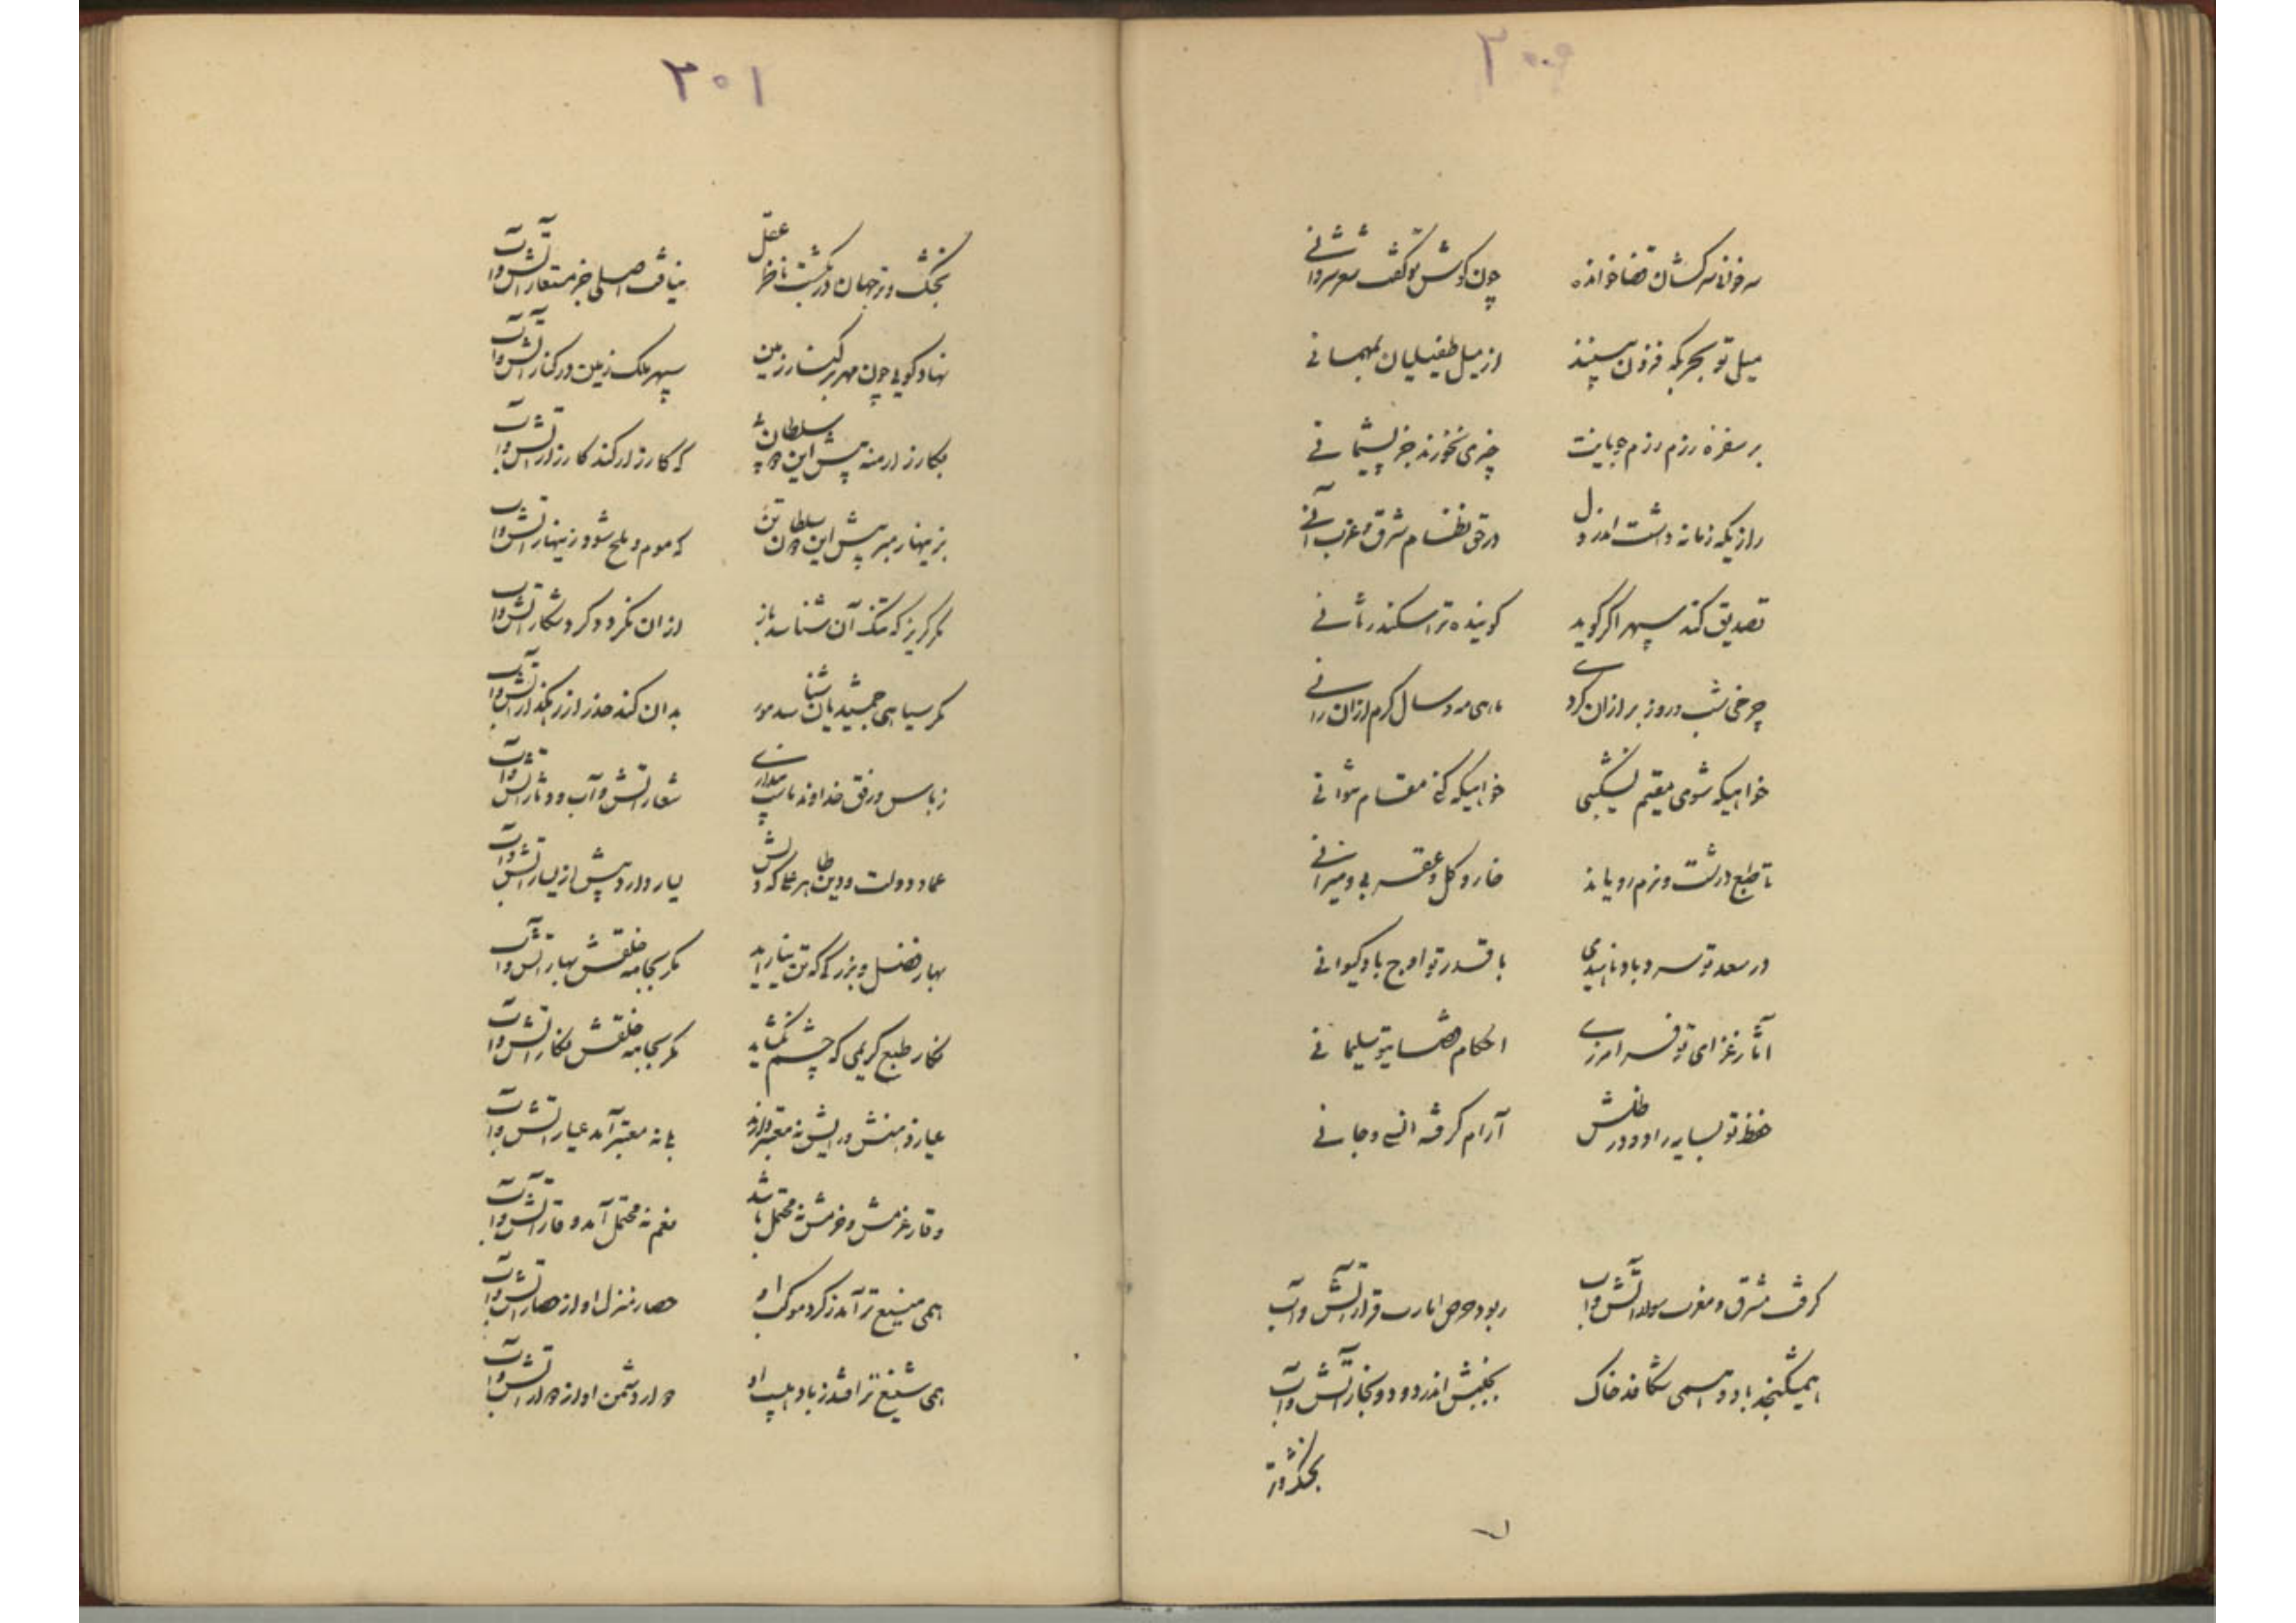 ۳۰۰
خوانده چون گوش تو گفت
میل تو بحربگه فزون بینند از میل طفیلیان بمهمانی
بر سفره رزم رزم جویانت چیزی نخورند جز پشیمانی
رازیکه زمانه داشت اندر دل در حق نظام شرق و غرب آنی
تصدیق کند سپهر اگر گوید گوینده ترا سکندر ثانی
چرخی شب و روز بر ازان گردی ماهی مه و سال گرم ازان رانی
خواهیکه شوی مقیم خواهیکه کنی مقام
تا طبع درشت و نرم رویاند خار و گل و عقربی و میزانی
در سعد تو سرو باد ناهیدی با قدر تو اوج باد کیوانی
آثار غزای تو فرامرزی احکام قضای تو سلیمانی
حفظ تو بسایه را و در ظلش آرام گرفته انسی و جانی
گرفت مشرق و مغرب سوار آتش و آب ربود حرص امارت قرار آتش و آب
همی شکنجد باد و همی شکافد خاک بجنبش اندر دود و بخار آتش و آب
بخشک و تر
۳۰۱
بخشک و تر جهان در بگشت ناظر عقل نیافت اصلی جز مستعار آتش و آب
نهاد گویی چون مهر بر کنار زمین سپهر ملک زمین در کنار آتش و آب
بکارزار منه پیش این و آن سلطان که کارزار کند کارزار آتش و آب
بزینهار مبر پیش این و آن سلطان تن که موم و ملح شود زینهار آتش و آب
مگر گریز که سنگ آن شناسد باز ازان نگردد گرد شکار آتش و آب
مگر سیاهی جمشید یان شناسد مور بدان کند حذر از رهگذار آتش و آب
ز باس و رفق خداوند شعار آتش و آب و دثار آتش و آب
عماد دولت و دین یسار دارد بیش از یسار آتش و آب
بهار فضل و بزرگی که تن نیاراید مگر بجامه خلقش بهار آتش و آب
نگار طبع کریمی که چشم نگشاید مگر بجامه خلقش نگار آتش و آب
عیار ذهنش و رایش نه معتبر دارند بلی نه معتبر آمد عیار آتش و آب
وقار عزمش و حزمش نه محتمل باشد نعم نه محتمل آمد وقار آتش و آب
همی منیع تر آمد ز گرد موکب او حصار منزل او از حصار آتش و آب
همی شنیع تر افتد ز باد هیبت او جوار دشمن او از جوار آتش و آب